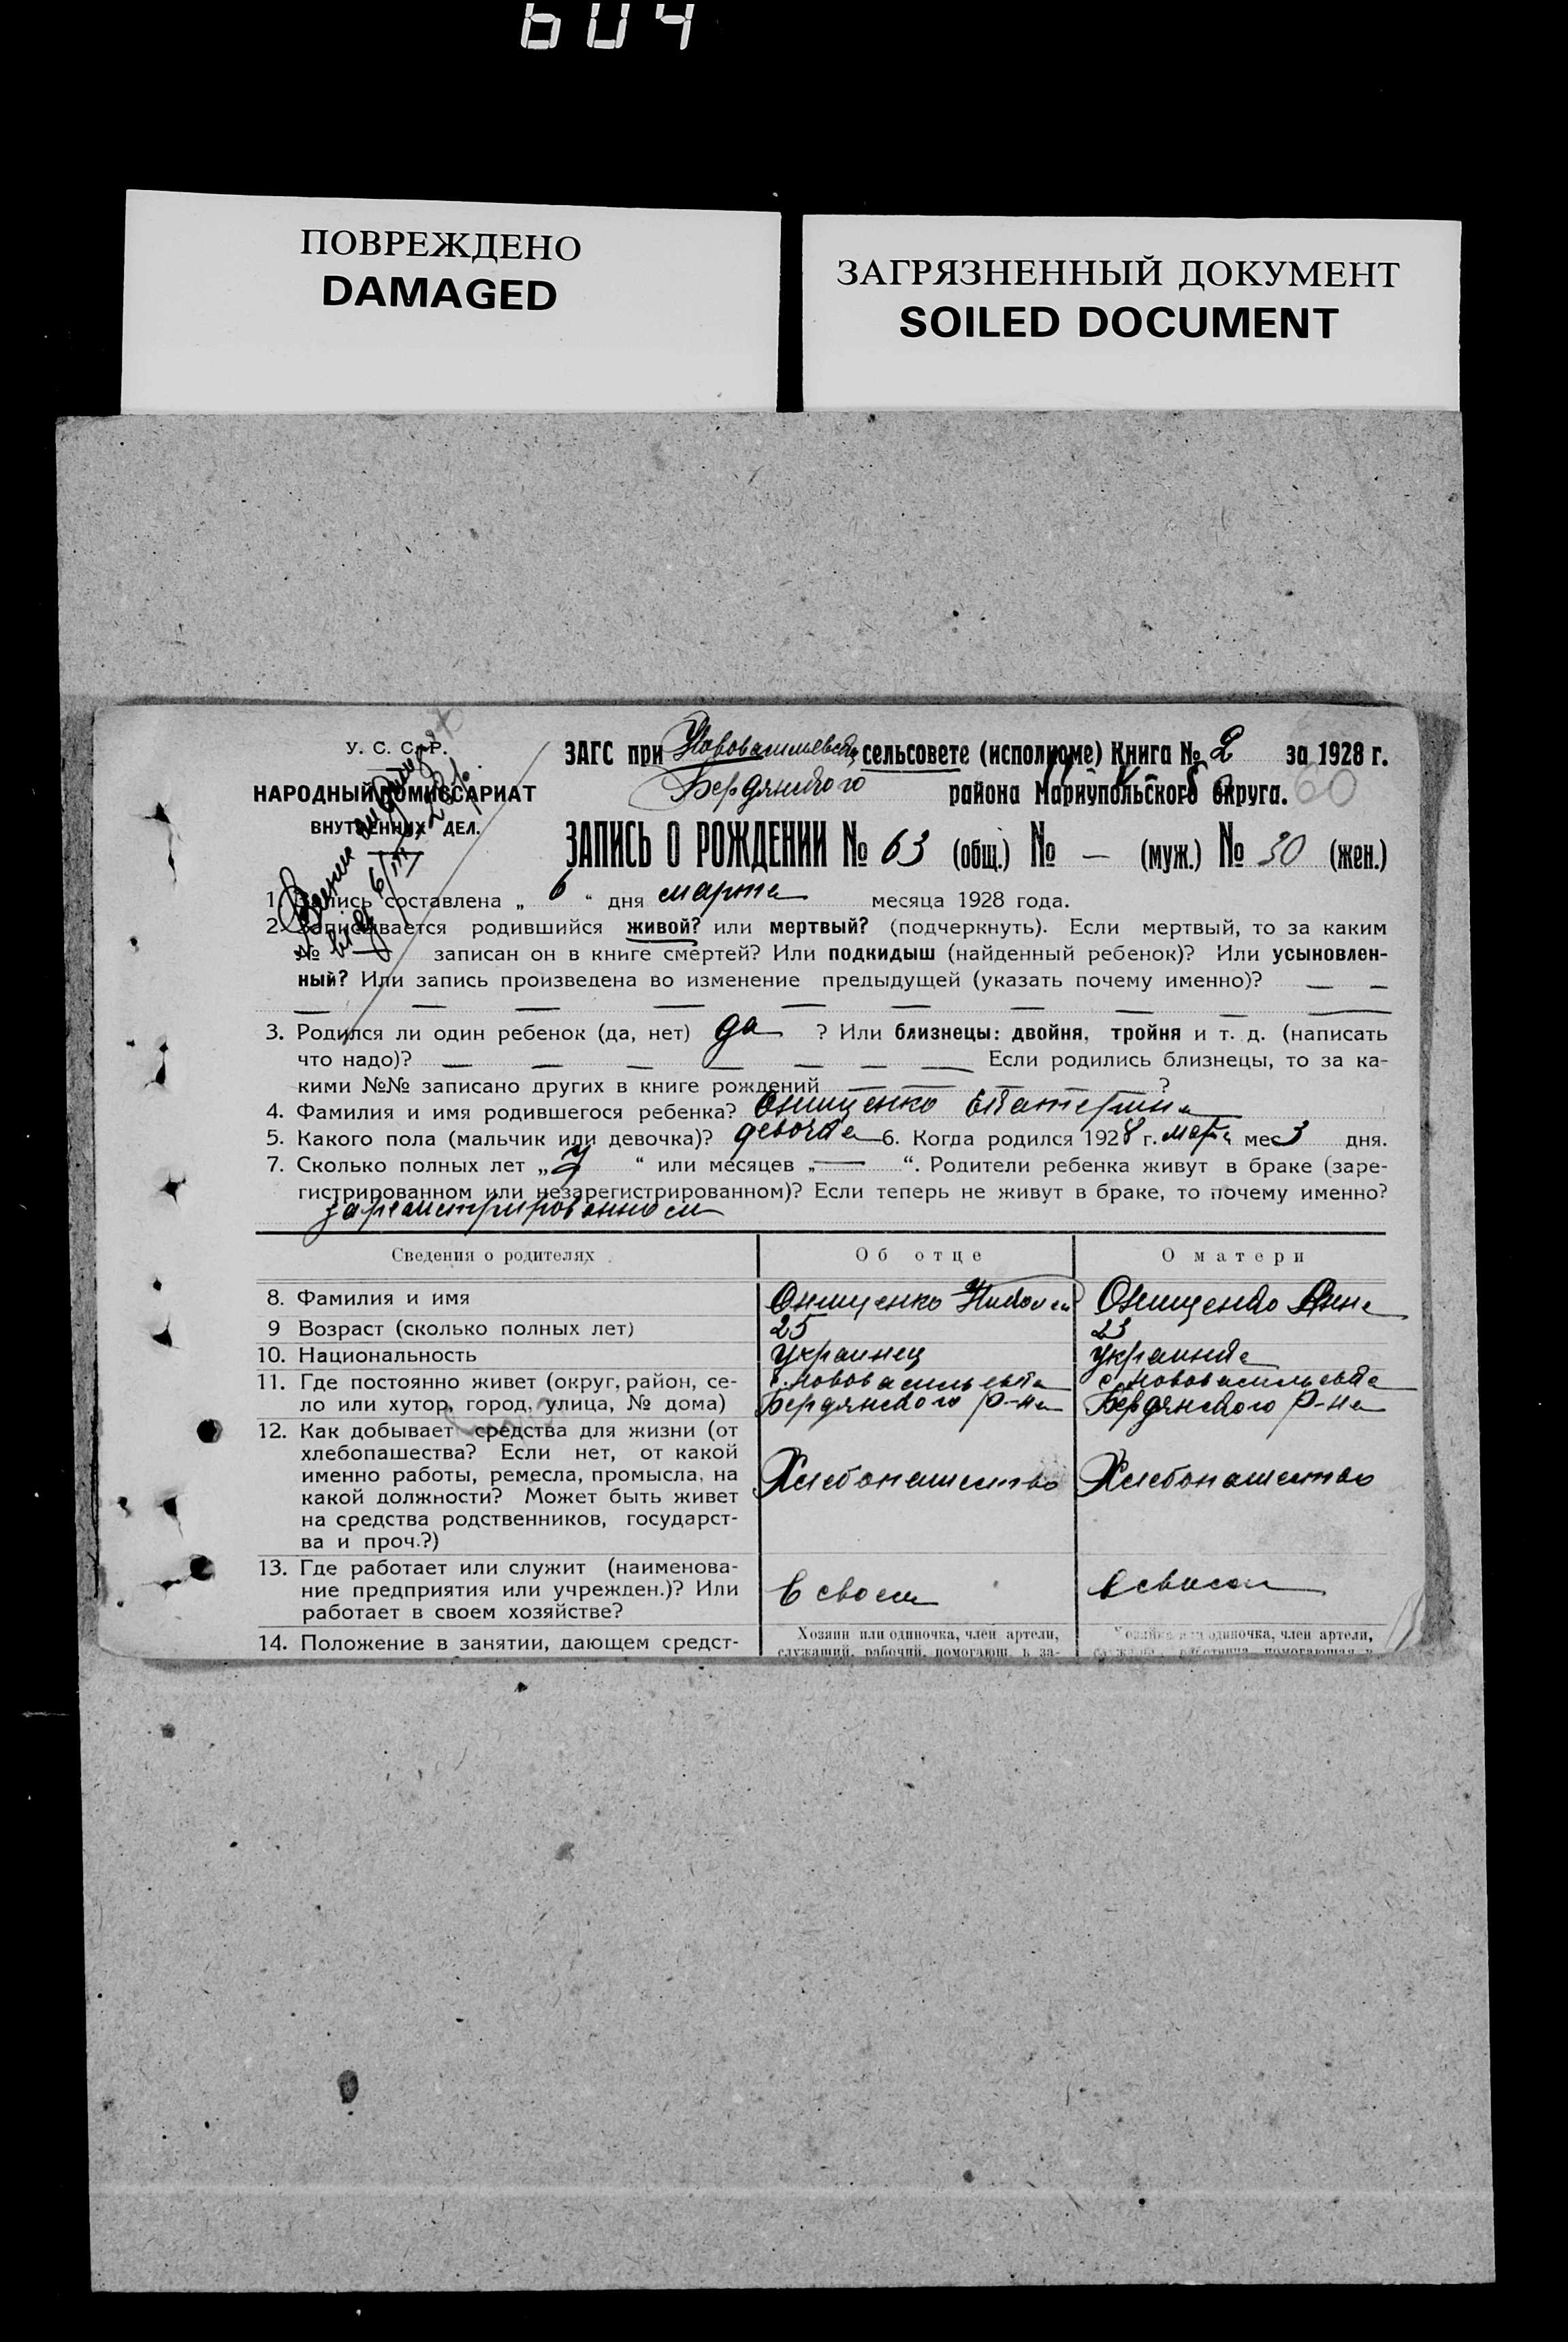 604
ПОВРЕЖДЕНО
DAMAGED
ЗАГРЯЗНЕННЫЙ ДОКУМЕНТ
SOILED DOCUMENT
У. С. С. Р.
НАРОДНЫЙ КОМИССАРИАТ
ВНУТРЕННИХ ДЕЛ.
6/III
ЗАГС при Нововасильевском сельсовете (исполкоме) Книга № 2 за 1928 г.
Бердянского района Мариупольского округа. 60
ЗАПИСЬ О РОЖДЕНИИ № 63 (общ.) № — (муж.) № 30 (жен.)
1. Запись составлена „ 6 “ дня марта месяца 1928 года.
2. Записывается родившийся живой? или мертвый? (подчеркнуть). Если мертвый, то за каким
№ записан он в книге смертей? Или подкидыш (найденный ребенок)? Или усыновлен-
ный? Или запись произведена во изменение предыдущей (указать почему именно)? — —
— — — — — — —
3. Родился ли один ребенок (да, нет) да ? Или близнецы: двойня, тройня и т. д. (написать
что надо)? — — — — — — — Если родились близнецы, то за ка-
кими №№ записано других в книге рождений — — — — ?
4. Фамилия и имя родившегося ребенка? Онищенко Екатерина
5. Какого пола (мальчик или девочка)? девочка 6. Когда родился 1928 г. марта мес 3 дня.
7. Сколько полных лет „ “ или месяцев „ — “. Родители ребенка живут в браке (заре-
гистрированном или незарегистрированном)? Если теперь не живут в браке, то почему именно?
зарегистрированном
Сведения о родителях
Об отце
О матери
8. Фамилия и имя
Онищенко Николай
Онищенко Анна
9 Возраст (сколько полных лет)
25
23
10. Национальность
украинец
украинка
11. Где постоянно живет (округ, район, се-
ло или хутор, город, улица, № дома)
с. Нововасильевка
Бердянского р-на
с Нововасильевка
Бердянского р-на
12. Как добывает средства для жизни (от
хлебопашества? Если нет, от какой
именно работы, ремесла, промысла, на
какой должности? Может быть живет
на средства родственников, государст-
ва и проч.?)
Хлебопашество
Хлебопашество
13. Где работает или служит (наименова-
ние предприятия или учрежден.)? Или
работает в своем хозяйстве?
в своем
в своем
14. Положение в занятии, дающем средст-
Хозяин или одиночка, член артели,
служащий, рабочий, помогающ. в за-
Хозяйка или одиночка, член артели,
служащ., работница, помогающая в